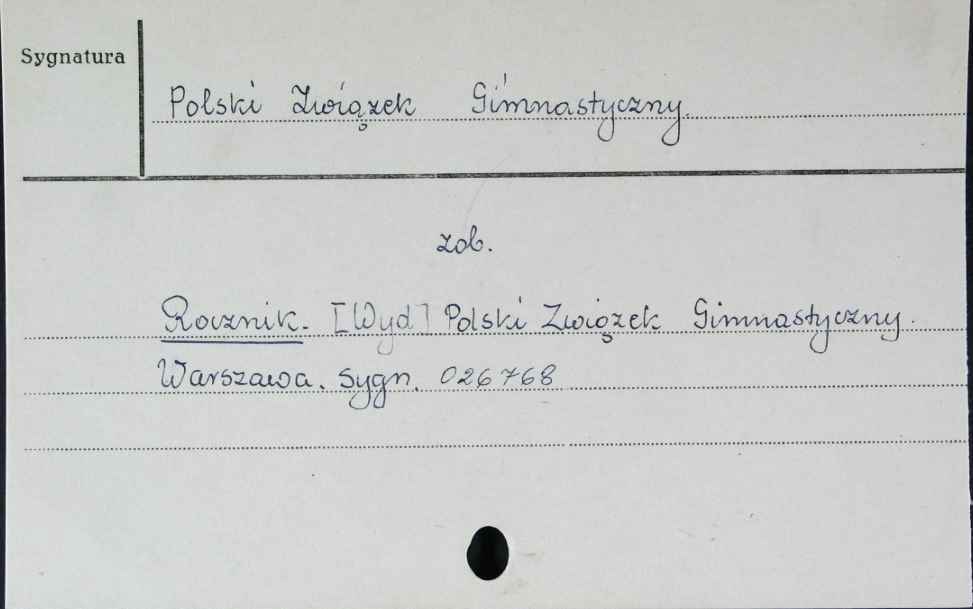 Sygnatura
Polski Związek Gimnastyczny.
zob.
Rocznik. [Wyd] Polski Związek Gimnastyczny.
Warszawa. sygn. 026768